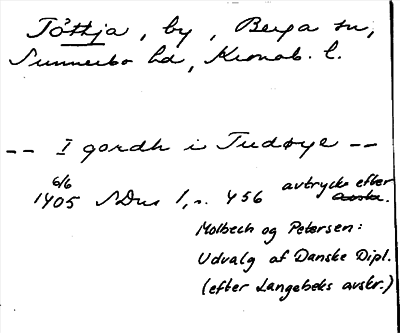 Tötthja, by, Berga sn,
Sunnerbo hd, Kronob. l.
-- I gordh i Tudøye --
6/6
1405 SDns 1, s. 456 avtryck efter
avskr.
Molbech og Petersen:
Udvalg af Danske Dipl.
(efter Langebeks avskr.)